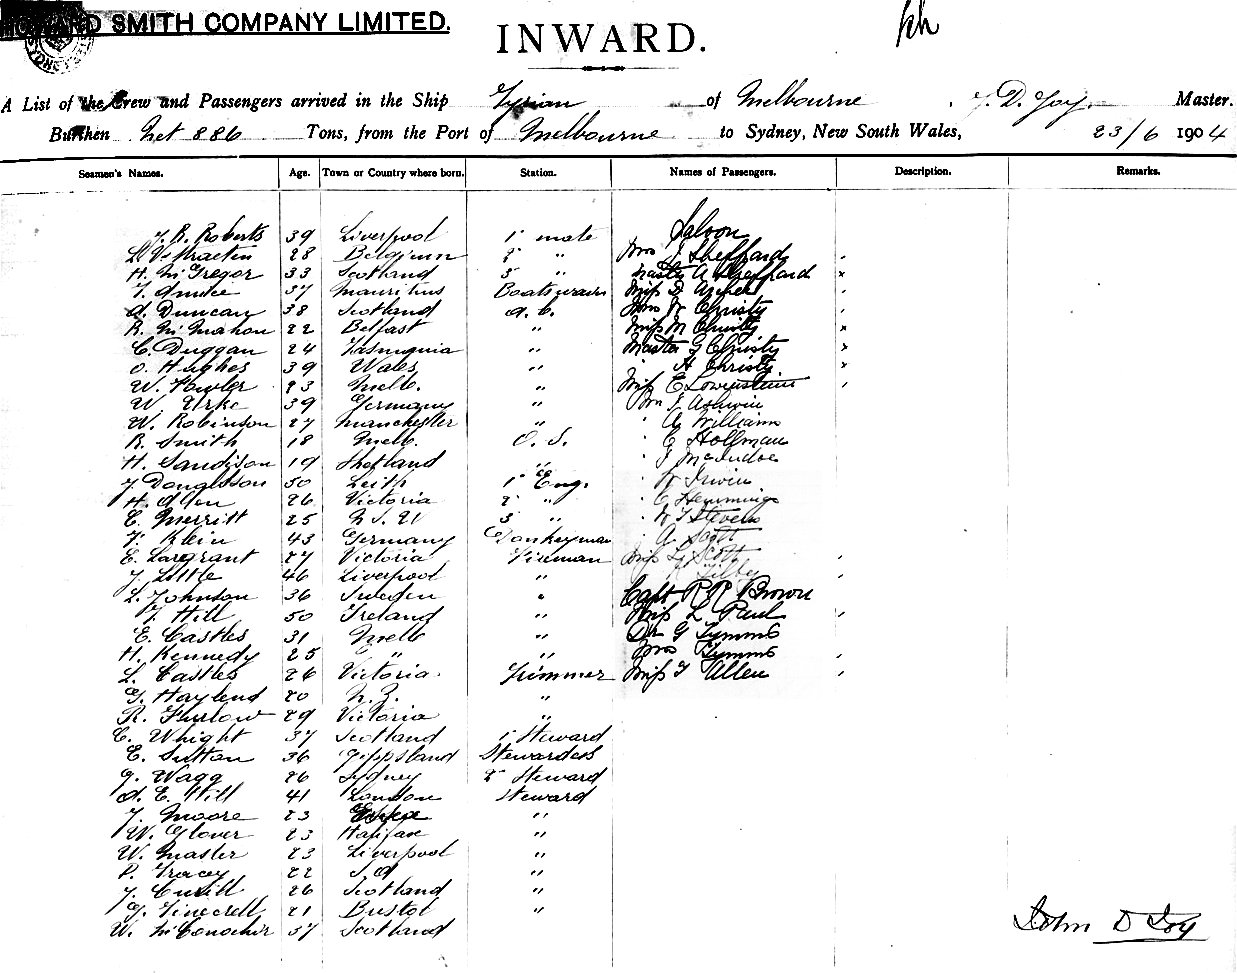 HOWARD SMITH COMPANY LIMITED.
INWARD.
A List of the Crew and Passengers arrived in the Ship Tyrian of Melbourne, J. D. Joy Master.
Burthen Net 886 Tons, from the Port of Melbourne to Sydney, New South Wales, 23/6 1904
Seamen's Names. Age. Town or Country where born. Station. Names of Passengers. Description. Remarks.
Saloon
J. R. Roberts 39 Liverpool 1st mate
28 Belgium 2 " Mrs J Sheppard ,
H. McGregor 33 Scotland 3 " Master A Sheppard x
37 Mauritius Boatswain Miss D Archer ,
A. Duncan 38 Scotland A.B. Mrs W Christy ,
R. McMahon 22 Belfast " Miss M Christy x
C. Duggan 24 Tasmania " Master G Christy x
O. Hughes 39 Wales " " H Christy x
W. Fowler 23 Melb. " Miss E Lowenstein ,
W. Urke 39 Germany " Mr J Ashwin
W. Robinson 27 Manchester " " A William
R. Smith 18 Melb. O.S. " C Hollman
H. Sandison 19 Shetland " "
J. Donaldson 50 Leith 1st Eng. " W Irwin
H. Allen 26 Victoria 2 " " C Hemmings
C. Merritt 25 N.S.W 3 " " W J Stevens
F. Klein 43 Germany Donkeyman " A Scott
E. Largrant 27 Victoria Fireman Miss L Scott ,
J. Little 46 Liverpool " " ,
L. Johnson 36 Sweden " Capt R R Brown
J. Hill 50 Ireland " Miss L Paul ,
E. Castles 31 Melb " Dr G Tymms
H. Kennedy 25 " " Mrs Tymms ,
L. Castles 26 Victoria. Trimmer Miss J Allen ,
G. Haylend 20 N.Z. "
R. Furlow 29 Victoria "
C. Whight 37 Scotland 1st Steward
E. Sutton 36 Gippsland Stewardess
G. Wagg 26 Sydney 2 Steward
A. E. Hill 41 London Steward
J. Moore 23 "
W. Glover 23 Halifax "
W. Master 23 Liverpool "
P. Tracey 22 S.A "
J. Currill 26 Scotland "
21 Bristol "
W. McConochir 37 Scotland
John D Joy